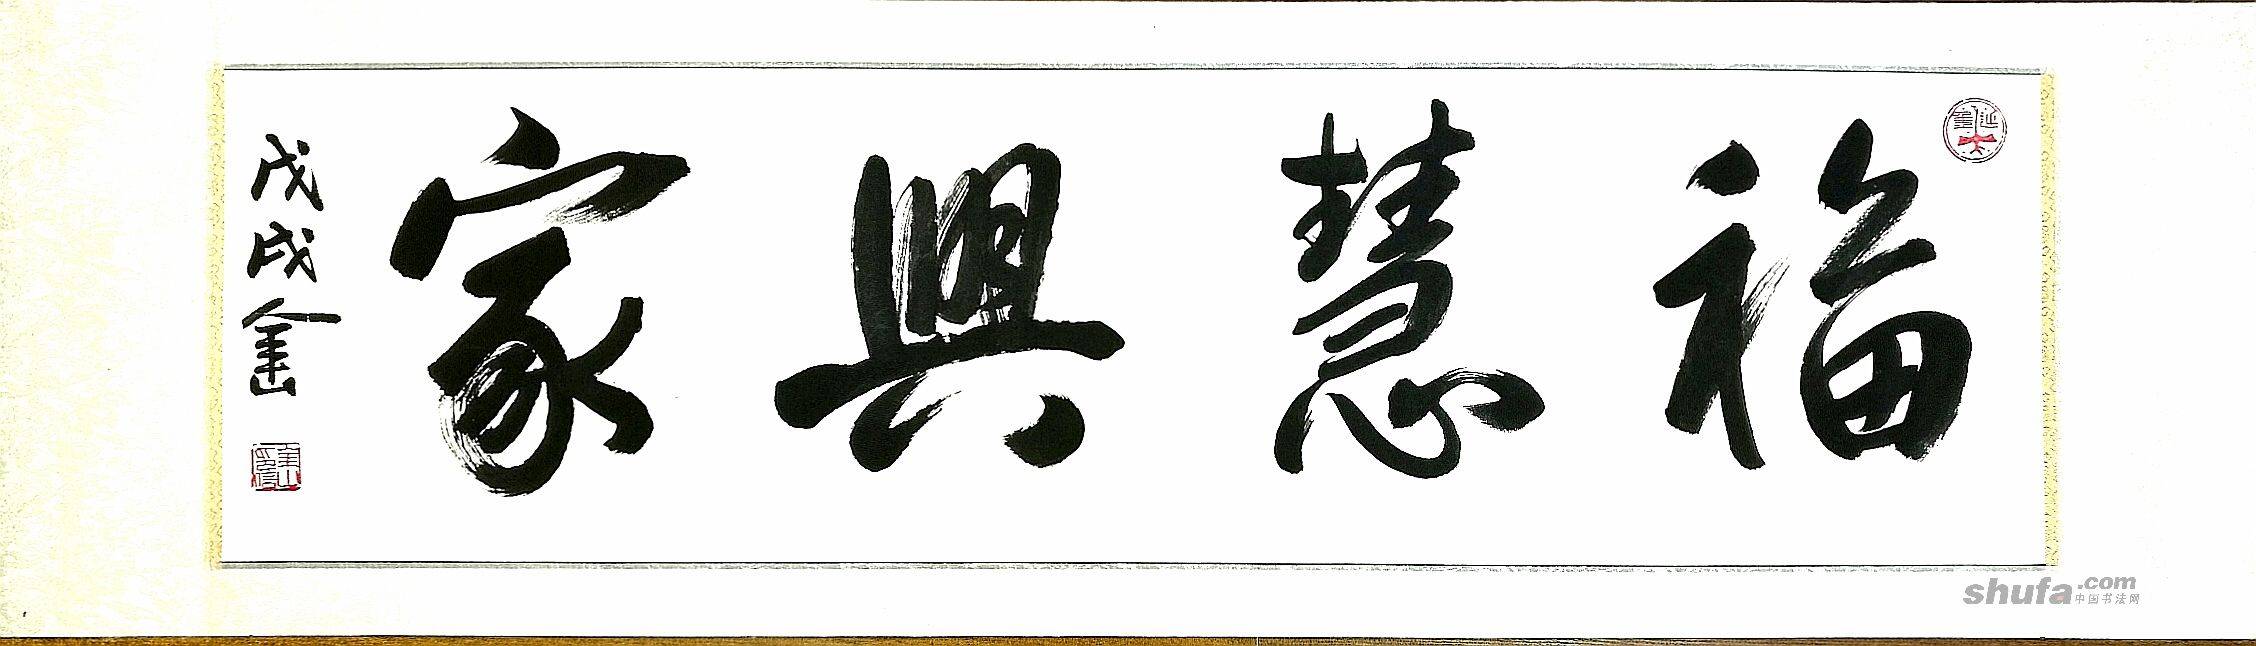 福慧興家
戊戌金山
shufa.com
中国书法网